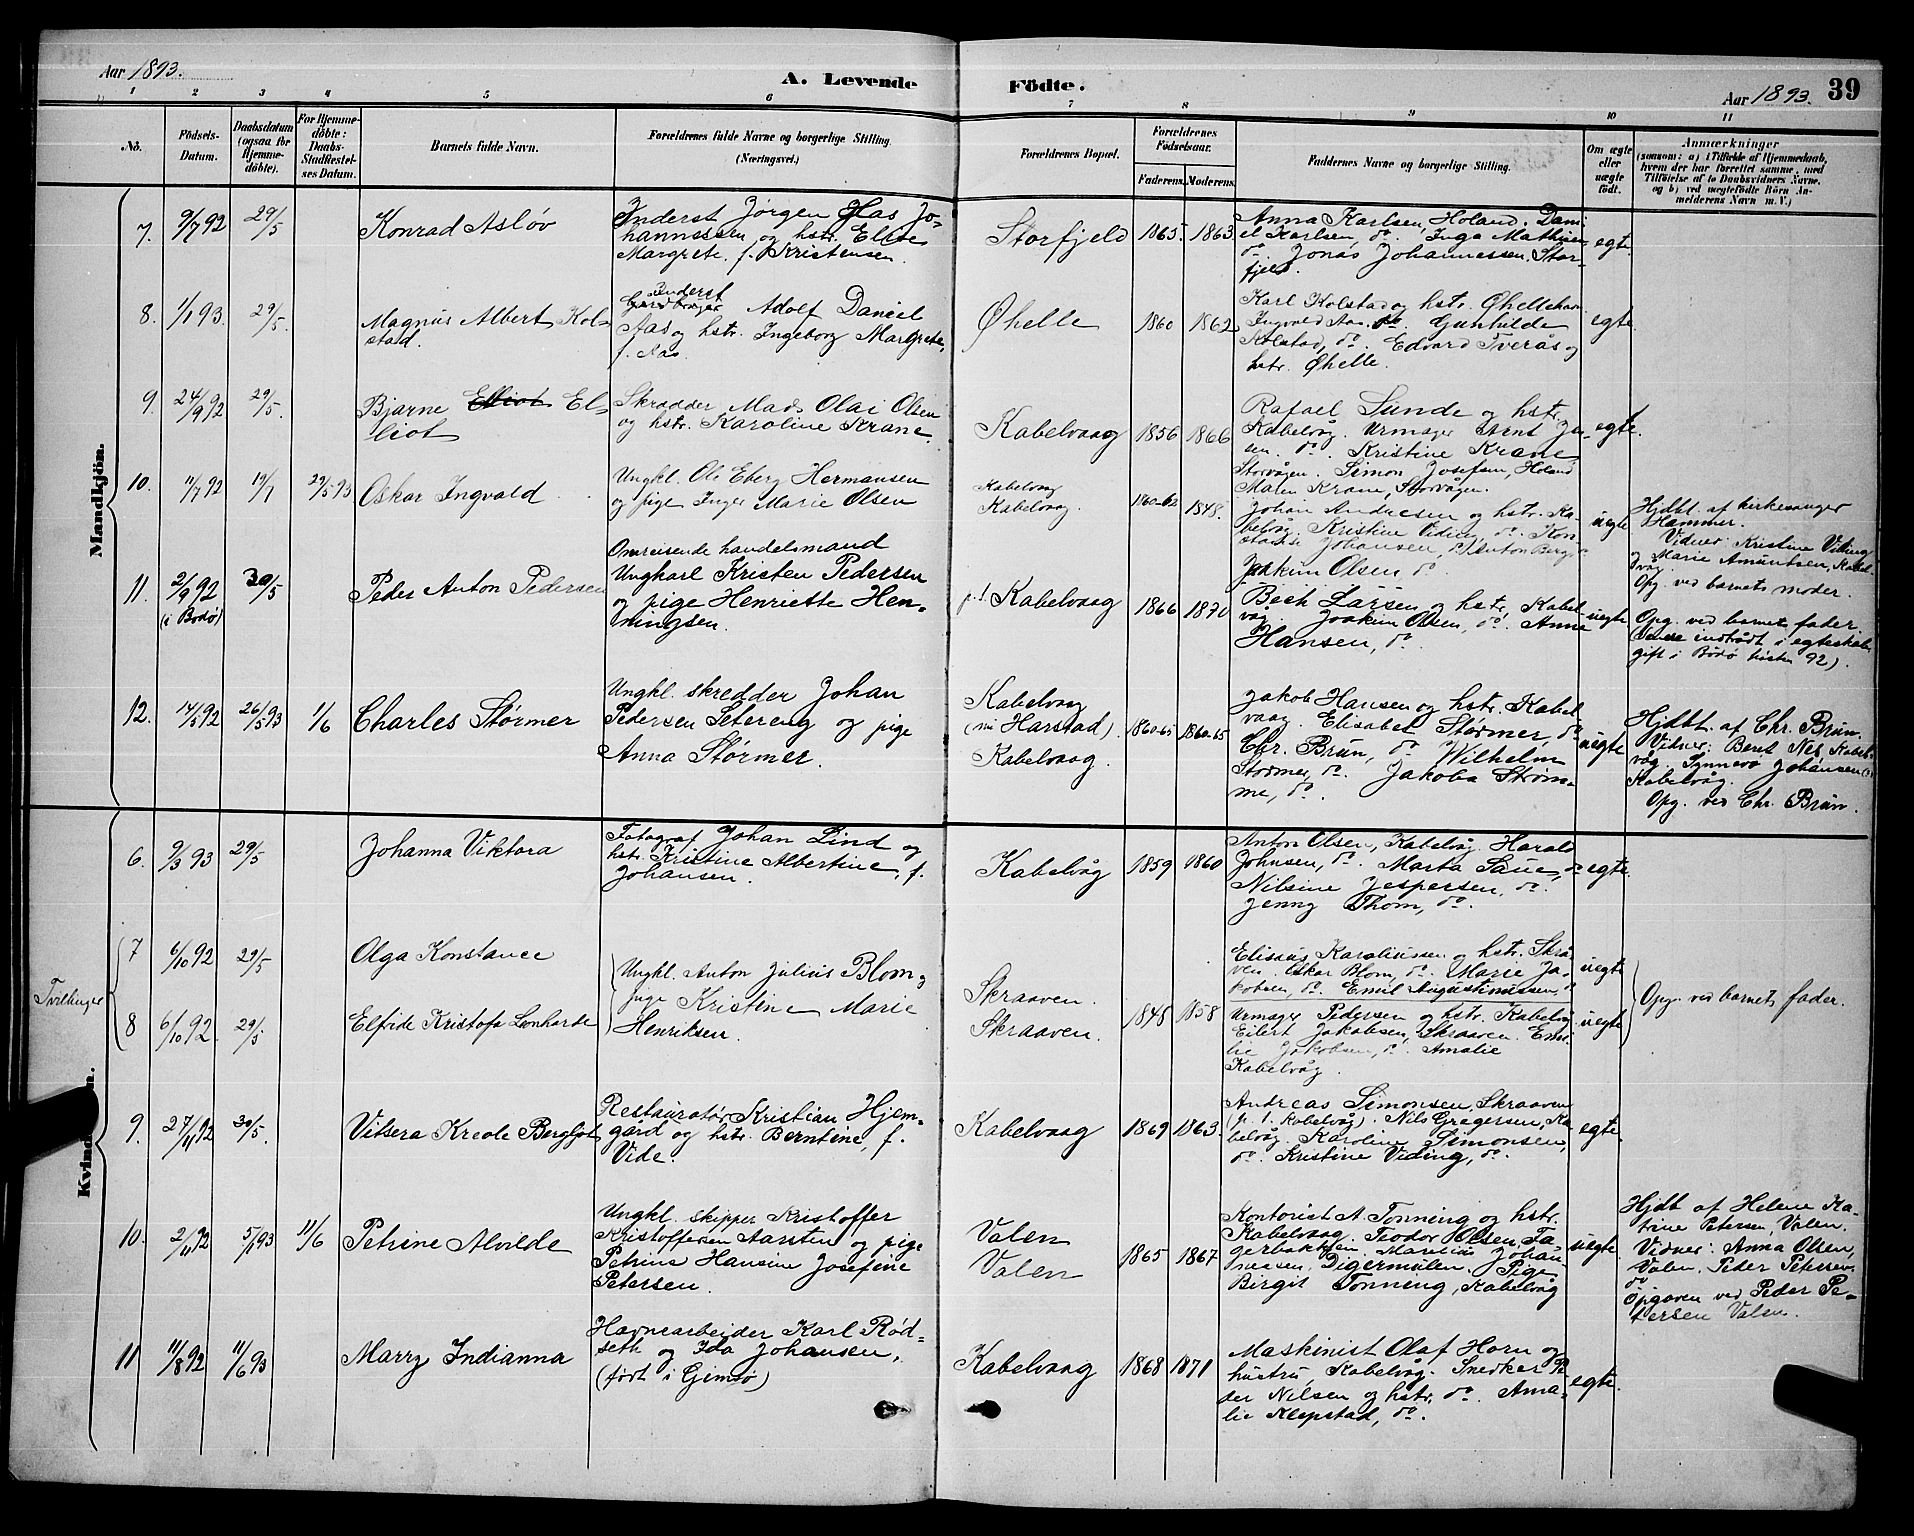 Aar 1893.
A. Levende Födte.
Aar 1893. 39
1 2 3 4 5 6 7 8 9 10 11
No.
Födsels-
Datum.
Daabsdatum
(ogsaa for
Hjemme-
döbte).
For Hjemme-
döbte:
Daabs-
Stadfæstel-
ses Datum.
Barnets fulde Navn.
Forældrenes fulde Navne og borgerlige Stilling.
(Næringsvei.)
Forældrenes Bopæl.
Forældrenes
Födselsaar.
Faderens. Moderens.
Faddernes Navne og borgerlige Stilling.
Om ægte
eller
uægte
födt.
Anmærkninger
(saasom: a) i Tilfælde af Hjemmedaab,
hvem der har forrettet samme, med
Tilföielse af to Daabsvidners Navne,
og b) ved uægtefödte Börn An-
melderens Navn m. V.)
Mandkjön.
7. 9/7 92 29/5
Konrad Asløv
Inderst Jørgen Elias Jo-
hannessen og hstr. Elise
Margrete, f. Kristensen.
Storfjeld 1865. 1863.
Anna Karlsen, Holand. Dani-
el Karlsen, do. Inga Mathisen
do. Jonas Johannessen, Stor-
fjeld.
egte.
8. 1/1 93. 29/5.
Magnus Albert Kol-
stad.
Inderst
Adolf Daniel
Aas og hstr. Ingeborg Margrete,
f. Aas.
Øhelle 1860 1862
Karl Kolstad og hstr. Øhellehavn
Ingvald Aas, do. Gunhilde
Kolstad, do. Edvard Tverås og
hstr. Øhelle.
egte.
9. 24/9 92 29/5.
Bjarne Elliot El-
liot
Skrædder Mads Olai Olsen
og hstr. Karoline Krane.
Kabelvaag 1856 1866
Rafael Sunde og hstr.
Kabelvåg. Urmager Arnt Jen-
sen. do. Kristine Krane
Storvågen. Simon Josefsen, Holand
Maren Krane, Storvågen.
egte.
10. 11/7 92 19/7 29/5 93
Oskar Ingvald
Ungkl. Ole Eberg Hermansen
og pige Inger Marie Olsen
Kabelvaag
Kabelvaag. 1860-62 1848.
Johan Andresen og hstr. Ka-
belvåg. Kristine Viding, do. Kon-
stanse Johansen, do. Anton Berg, do
Joakim Olsen, do.
uegte
Hjdbt. af kirkesanger
Hammer.
Vidner: Kristine Viding
og Marie Amundsen, Kabel-
våg.
Opg. ved barnets moder.
11. 2/9 92 30/5
(i Bodø)
Peder Anton Pedersen
Omreisende handelsmand
Ungkarl Kristen Pedersen
og pige Henriette Hen-
ningsen.
p.t. Kabelvaag 1866 1870
Bech Larsen og hstr., Kabel-
våg. Joakim Olsen, do. Anna
Hansen, do.
uegte
Opg. ved barnets fader
(Senere indtrådt i egteskab,
gift i Bodø høsten 92).
12. 14/5 92 26/5 93 1/6
Charles Størmer
Ungkl. skredder Johan
Pedersen Setereng og pige
Anna Størmer.
Kabelvaag
(nu Harstad)
Kabelvaag. 1860-65 1860-65
Jakob Hansen og hstr. Kabel-
vaag. Elisabet Størmer, do
Chr. Brun, do. Wilhelm
Størmer, do. Jakoba Strøm-
me, do.
uegte
Hjdbt. af Chr. Brun.
Vidner: Bent Nes, Kabel-
våg. Synneve Johansen,
Kabelvåg.
Opg. ved Chr. Brun.
Kvindekjön.
6. 9/3 93 29/5
Johanna Viktora
Fotograf Johan Lind og
hstr. Kristine Albertine, f.
Johansen.
Kabelvåg 1859 1860
Anton Olsen, Kabelvåg. Harald
Johnsen, do. Marta Saue, do.
Nilsine Jespersen, do.
Jenny Thom, do.
egte
Tvillinger
7 6/10 92 29/5
Olga Konstance
Ungkl. Anton Julius Blom og
pige Kristine Marie
Henriksen.
Skraaven.
Elisæus Karoliussen og hstr. Skrå-
ven. Oskar Blom, do. Marie Ja-
kobsen, do. Emil Augustinussen, do
uegte
Opg. ved barnets fader.
8 6/10 92. 29/5
Elfride Kristofa Leonharde
Skraaven. 1848 1858
Urmager Pedersen og hstr. Kabelvåg
Eilert Jakobsen, Skraaven. Emi-
lie Jakobsen, do. Amalie
Kabelvåg.
uegte
9. 27/11 92 30/5.
Vitsera Kreole Bergljot
Restauratør Kristian Hjem-
gård og hstr. Berntine, f.
Vide.
Kabelvaag 1869 1863.
Andreas Simonsen, Skraaven
(p. t. Kabelvåg). Nils Gregersen, Ka-
belvåg. Karoline Simonsen,
do. Kristine Viding, do.
egte
10. 2/11 92 5/1 93 11/6
Petrine Alvilde
Ungkl. skipper Kristoffer
Kristoffersen Aarsten og pige
Petrine Hansine Josefine
Petersen.
Valen
Valen 1865 1867
Kontorist A. Tonning og hstr.
Kabelvaag. Teodor Olsen, Fa-
gerbakken. Marelius Johan-
nessen, Digermulen. Pige
Birgit Tonning, Kabelvåg
uegte.
Hjdt af Helene Ka-
trine Petersen, Valen.
Vidner: Anna Olsen,
Valen. Peder Petersen,
do
Opgaven ved Peder Pe-
tersen Valen.
11 11/8 92 11/6 93
Marry Indianna
Havnearbeider Karl Rød-
seth og Ida Johansen,
(født i Gimsø)
Kabelvaag 1868 1871
Maskinist Olaf Horn og
hustru, Kabelvåg. Snedker Pe-
der Nilsen og hstr. do. Ama-
lie Klepstad, do.
egte.